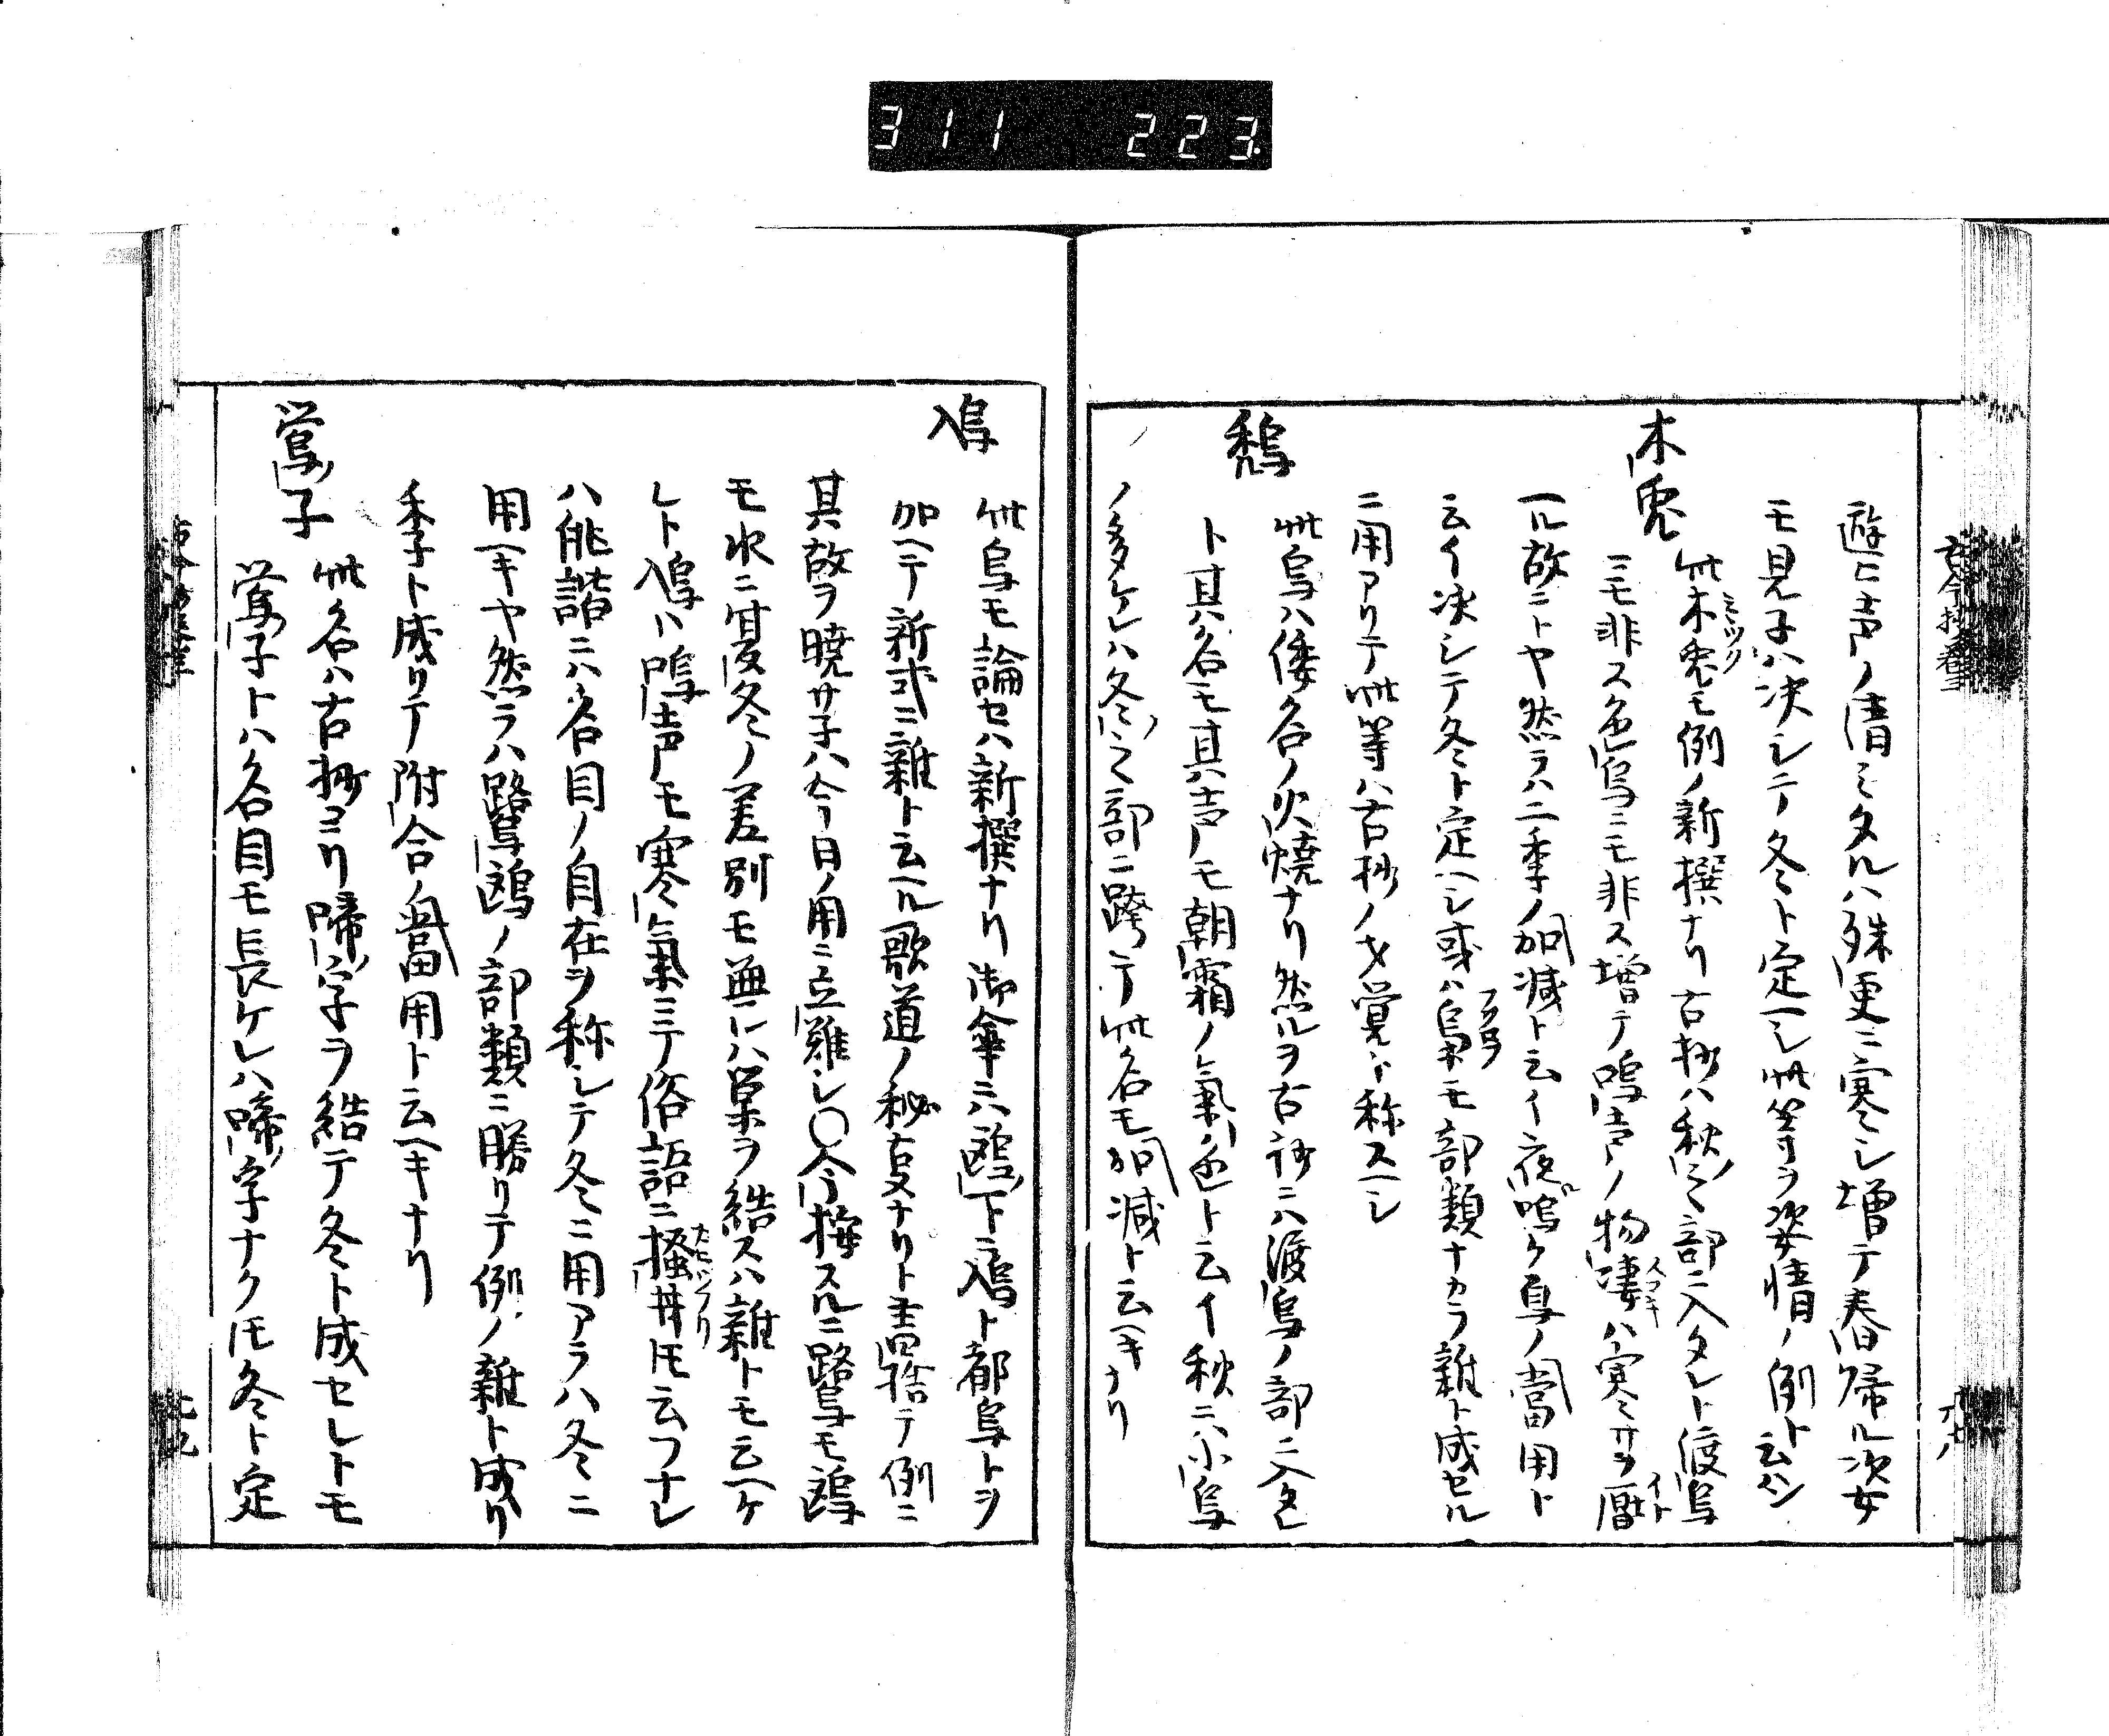 311 223
遊ヒ声ノ清ミタルハ殊更ニ寒シ増テ春帰ル次女
モ見子ハ決シテ冬ト定ヘシ此等ヲ姿情ノ例ト云ヘシ
木兎
此木兎モ例ノ新撰ナリ古抄ハ秋ノ部ニ入タレト渡鳥
ミツク
ニモ非ス色鳥ニモ非ス増テ鳴声ノ物凄ハ寒サヲ厭
スコキ
イト
ヘル故ニトヤ然ラハ二季ノ加減ト云イ夜鳴ケ鳥ノ当用ト
云イ決シテ冬ト定ヘシ或ハ梟モ部類ナカラ雑ト成セル
フクロフ
ニ用アリテ此等ハ古抄ノ才覚ト称スヘシ
鵚
此鳥ハ倭名ノ火焼ナリ然ルヲ古抄ニハ渡鳥ノ部ニ入タレ
ト其名モ其声モ朝霜ノ氣色ト云イ秋ニハ小鳥
ノ多ケレハ冬ノ部ニ跨テ此名モ加減ト云ヘキナリ
鳰
此鳥モ論セハ新撰ナリ御傘ニハ鴎ト鳰ト都鳥トヲ
加ヘテ新式ニ雑ト云ヘル歌道ノ秘事ナリト書捨テ例ニ
其故ヲ暁サ子ハ今日ノ用ニ立難シ〇今按スルニ鷺モ鴎
モ水ニ夏冬ノ差別モ無レハ巣ヲ結スハ雑トモ云ヘケ
レト鳰ハ鳴声モ寒氣ニテ俗語ニ掻丼トモ云フナレ
ハ俳諧ニハ名目ノ自在ヲ称シテ冬ニ用アラハ冬ニ
用ヘキヤ然ラハ鷺鴎ノ部類ニ勝リテ例ノ雑ト成リ
季ト成リテ附合ノ當用ト云ヘキナリ
鴬子
此名ハ古抄ヨリ啼字ヲ結テ冬ト成セレトモ
鴬子トハ名目モ長ケレハ啼ノ字ナクトモ冬ト定